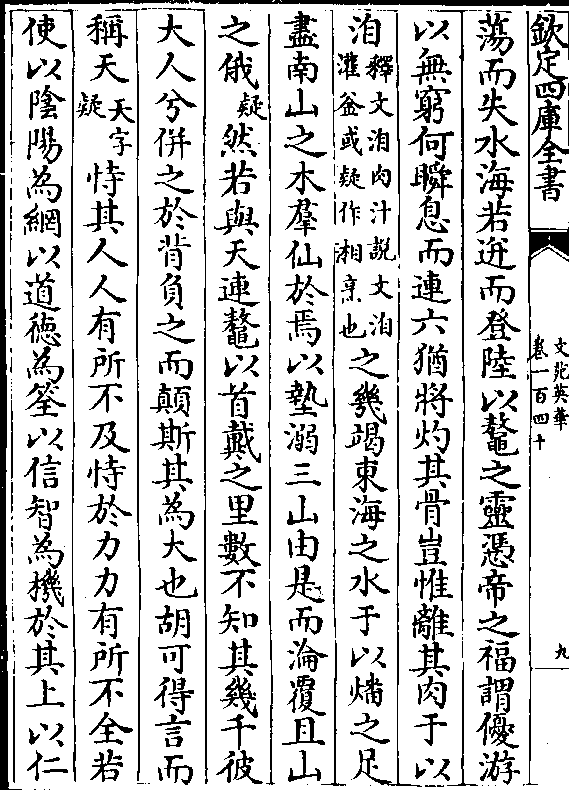 欽定四庫全書
文苑英華
卷一百四十
九
蕩而失水海若迸而登陸以鼇之靈憑帝之福謂優游
以無窮何瞬息而連六猶將灼其骨豈惟離其肉于以
洎釋文洎肉汁說文洎灌釜或疑作相烹也之幾竭東海之水于以燔之足
盡南山之木羣仙於焉以墊溺三山由是而淪覆且山
之俄疑然若與天連鼇以首戴之里數不知其幾千彼
大人兮併之於背負之而顛斯其為大也胡可得言而
稱天天字疑恃其人人有所不及恃於力力有所不全若
使以陰陽為網以道德為筌以信智為機於其上以仁